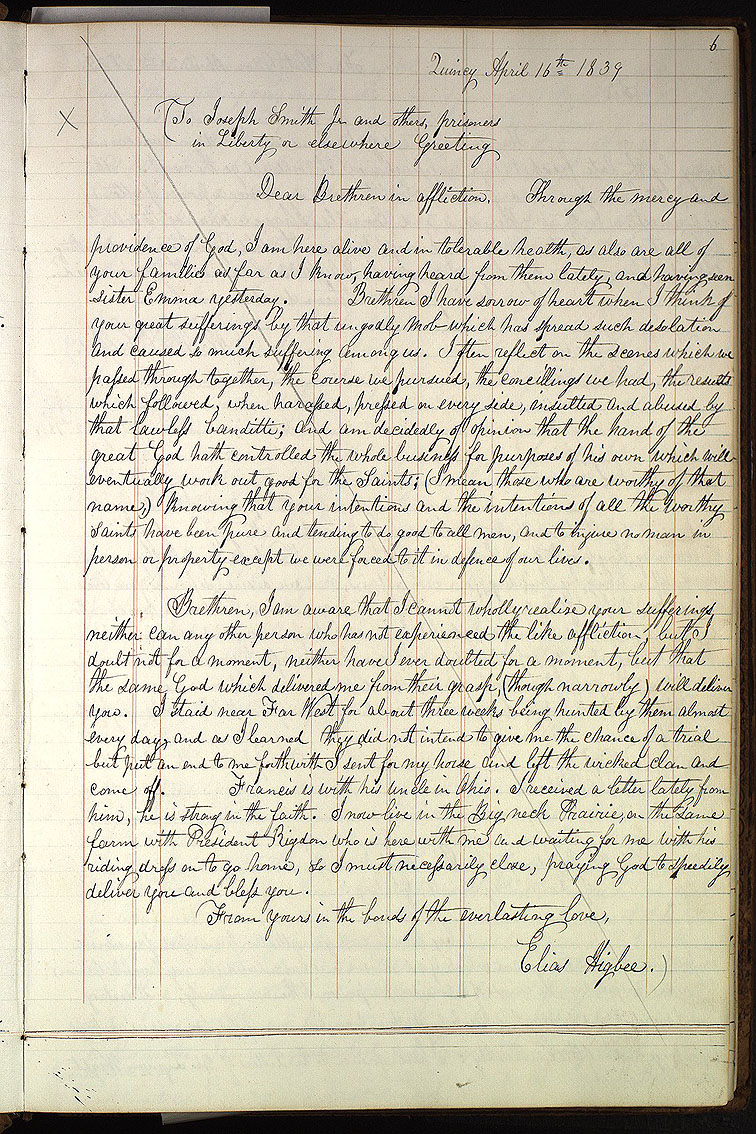 6
Quincy April 16th 1839
(To Joseph Smith Jr and others, prisoners
in Liberty or elsewhere Greeting
X
Dear Brethren in affliction. Through the mercy and
providence of God, I am here alive and in tolerable health, as also are all of
your families as far as I know, having heard from them lately, and having seen
sister Emma yesterday. Brethren I have sorrow of heart when I think of
your great sufferings by that ungodly mob which has spread such desolation
and caused so much suffering among us. I often reflect on the scenes which we
passed through together, the course we pursued, the concillings we had, the results
which followed, when harassed, pressed on every side, insulted and abused by
that lawless banditti; and am decidedly of opinion that the hand of the
great God hath controlled the whole business for purposes of his own which will
eventually work out good for the Saints; (I mean those who are worthy of that
name,) knowing that your intentions and the intentions of all the worthy
Saints have been pure and tending to do good to all men, and to injure no man in
person or property except we were forced to it in defence of our lives.
Brethren, I am aware that I cannot wholly realise your sufferings,
neither can any other person who has not experienced the like affliction, but I
doubt not for a moment, neither have I ever doubted for a moment, but that
the same God which delivered me from their grasp, (though narrowly) will deliver
you. I staid near Far West for about three weeks being hunted by them almost
every day, and as I learned they did not intend to give me the chance of a trial
but put an end to me forthwith I sent for my horse and left the wicked clan and
come off. Francis is with his uncle in Ohio. I received a letter lately from
him, he is strong in the faith. I now live in the Big neck Prairie, on the same
farm with President Rigdon who is here with me and waiting for me with his
riding dress on to go home, so I must necessarily close, praying God to speedily
deliver you and bless you.
From yours in the bonds of the everlasting love,
Elias Higbee.)